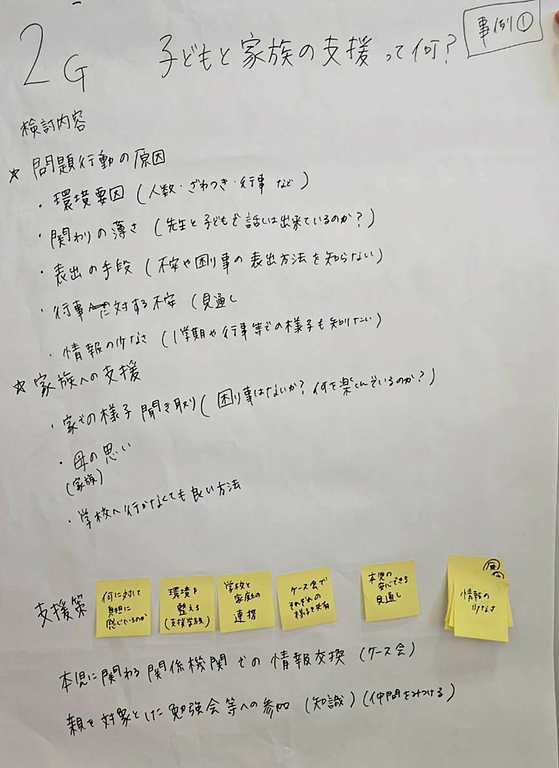 2G
子どもと家族の支援って何?
事例①
検討内容
☆ 問題行動の原因
・環境要因 (人数・ざわつき・行事 など)
・関わりの薄さ (先生と子どもど話しは出来ているのか?)
・表出の手段 (不安や困り事の表出方法を知らない)
・行事に対する不安 (見通し
・情報の少なさ (1学期や行事等での様子も知りたい)
☆ 家族への支援
・家での様子 聞き取り (困り事はないか? 何を楽しんでいるのか?)
・母の思い
(家族)
・学校へ行かなくても良い方法
支援策
何に対して
負担に
感じているのか
環境を
整える
(支援学級)
学校と
家庭の
連携
ケース会で
それぞれの
様子を共有
本児の
安心できる
見通し
情報の
少なさ
本児に関わる関係機関での情報交換 (ケース会)
親を対象とした勉強会等への参加 (知識) (仲間をみつける)